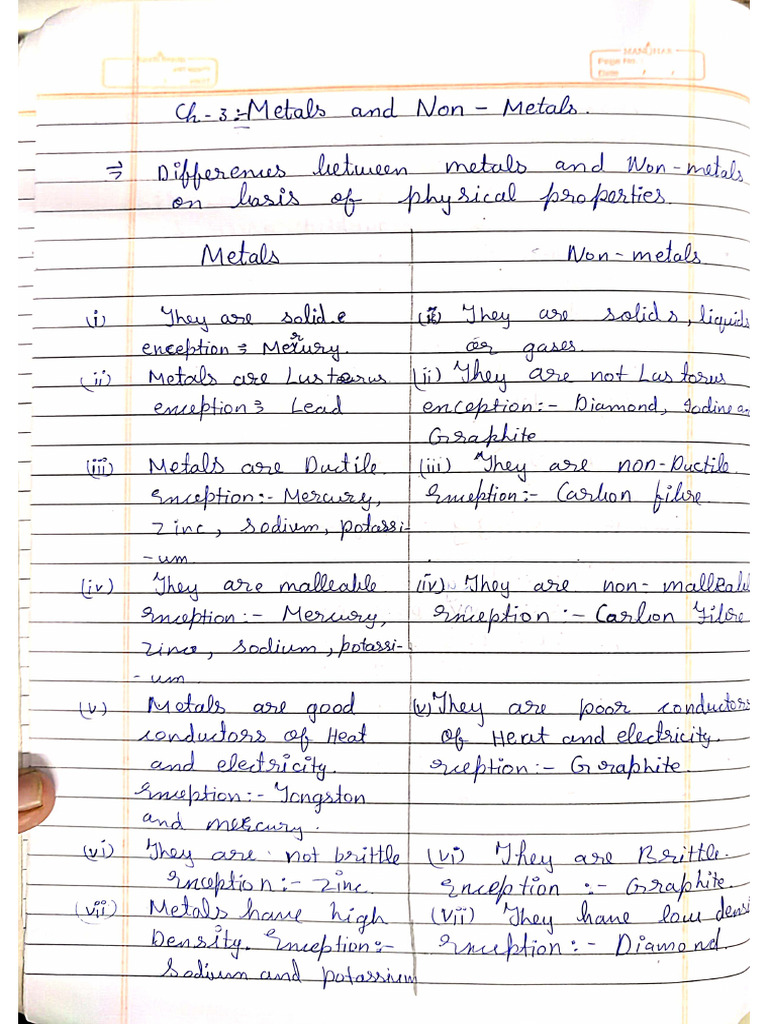 MANOHAR
Page No.
Date / /
Ch-3:- Metals and Non-Metals.
⇒ Differences between metals and Non-metals
on basis of physical properties.
Metals
Non-metals
(i) They are solid.
exception:- Mercury.
(i) They are solids, liquids
or gases.
(ii) Metals are Lustorus
exception:- Lead
(ii) They are not Lustorus
exception:- Diamond, Iodine
Graphite
(iii) Metals are Ductile.
Exception:- Mercury,
Zinc, Sodium, potassi-
-um.
(iii) They are non-Ductile
Exception:- Carbon fibre.
(iv) They are malleable
Exception:- Mercury,
Zinc, Sodium, potassi-
-um.
(iv) They are non-malleabl
Exception:- Carbon Fibre
(v) Metals are good
conductors of Heat
and electricity.
Exception:- Tongston
and mercury.
(v) They are poor conductors
of Heat and electricity.
Exception:- Graphite.
(vi) They are not brittle
Exception:- Zinc.
(vi) They are Brittle.
Exception:- Graphite.
(vii) Metals have high
Density. Exception:-
Sodium and potassium
(vii) They have low densi
Exception:- Diamond.